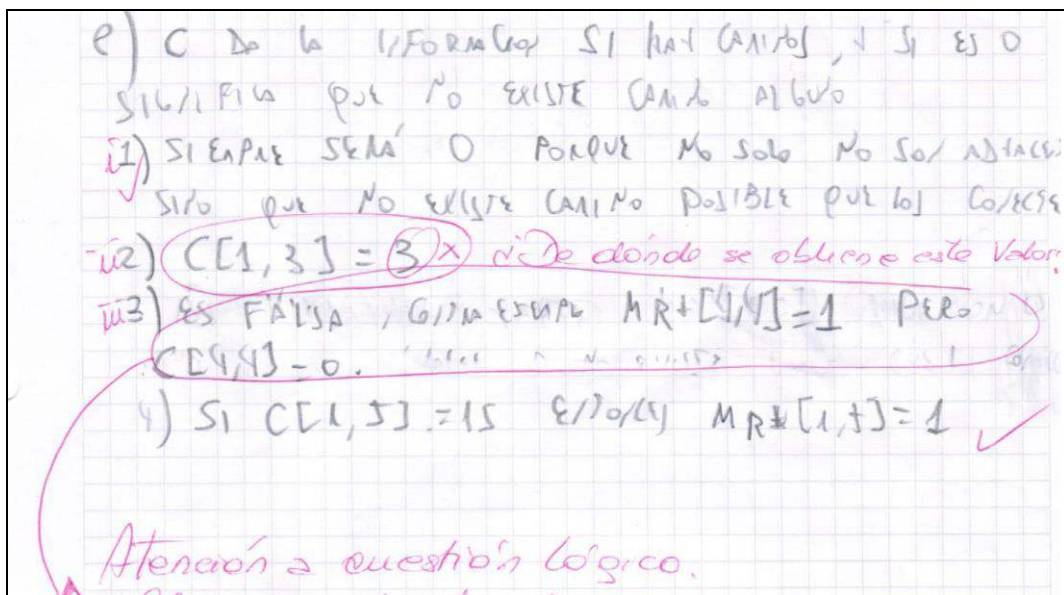 e) C DA LA INFORMACION SI HAY CAMINOS, Y SI ES 0
SIGNIFICA QUE NO EXISTE CAMINO ALGUNO
i1) SIEMPRE SERÁ 0 PORQUE NO SOLO NO SON ADYACEN
SINO QUE NO EXISTE CAMINO POSIBLE QUE LOS CONECTE
ii2) C[1,3] = 3 x ¿De dónde se obtiene este valor?
iii3) ES FALSA, MR+[4,4]=1 PERO
C[4,4]=0.
4) SI C[1,5]=15 ENTONCES MR*[1,5]=1
Atención a cuestión lógico.